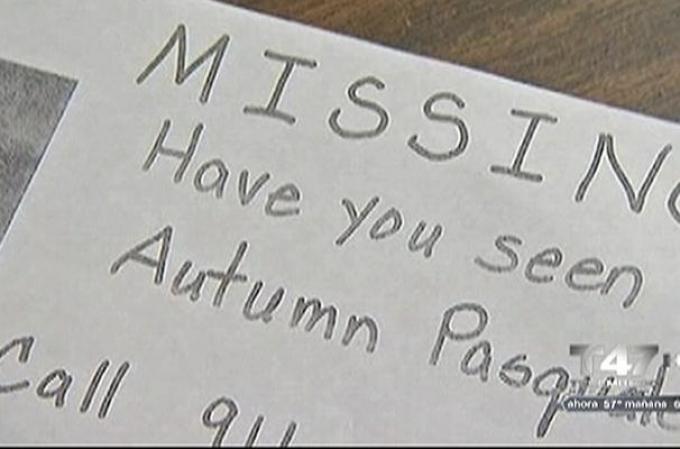 MISSING
Have you seen
Autumn Pasquale
Call 911
T47
ahora 57° mañana 6